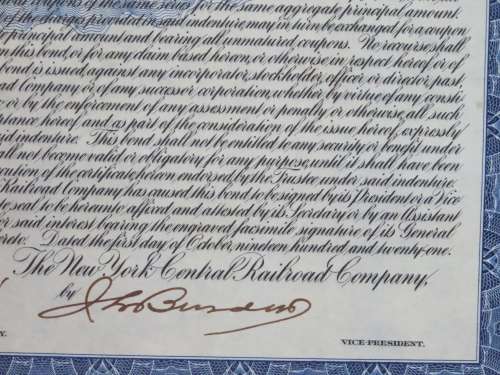 coupons of the same series for the same aggregate principal amount.
of the charges provided in said indenture, may, in turn, be exchanged for a coupon
principal amount and bearing all unmatured coupons. No recourse shall
on this bond, or for any claim based hereon, or otherwise in respect hereof or of
bond is issued, against any incorporator, stockholder, officer or director, past,
d Company or, of any successor corporation, whether by virtue of any consti-
e or by the enforcement of any assessment or penalty or otherwise, all such
ptance hereof and as part of the consideration of the issue hereof, expressly
aid indenture. This bond shall not be entitled to any security or benefit under
ll not become valid or obligatory for any purpose, until it shall have been
ecution of the certificate hereon endorsed, by the Trustee under said indenture.
Railroad Company has caused this bond to be signed by its President or a Vice
te seal to be hereunto affixed and attested by its Secretary or by an Assistant
or said interest bearing the engraved facsimile signature of its General
ereto. Dated the first day of October, nineteen hundred and twenty-one.
The New York Central Railroad Company,
by
Y.
VICE-PRESIDENT.